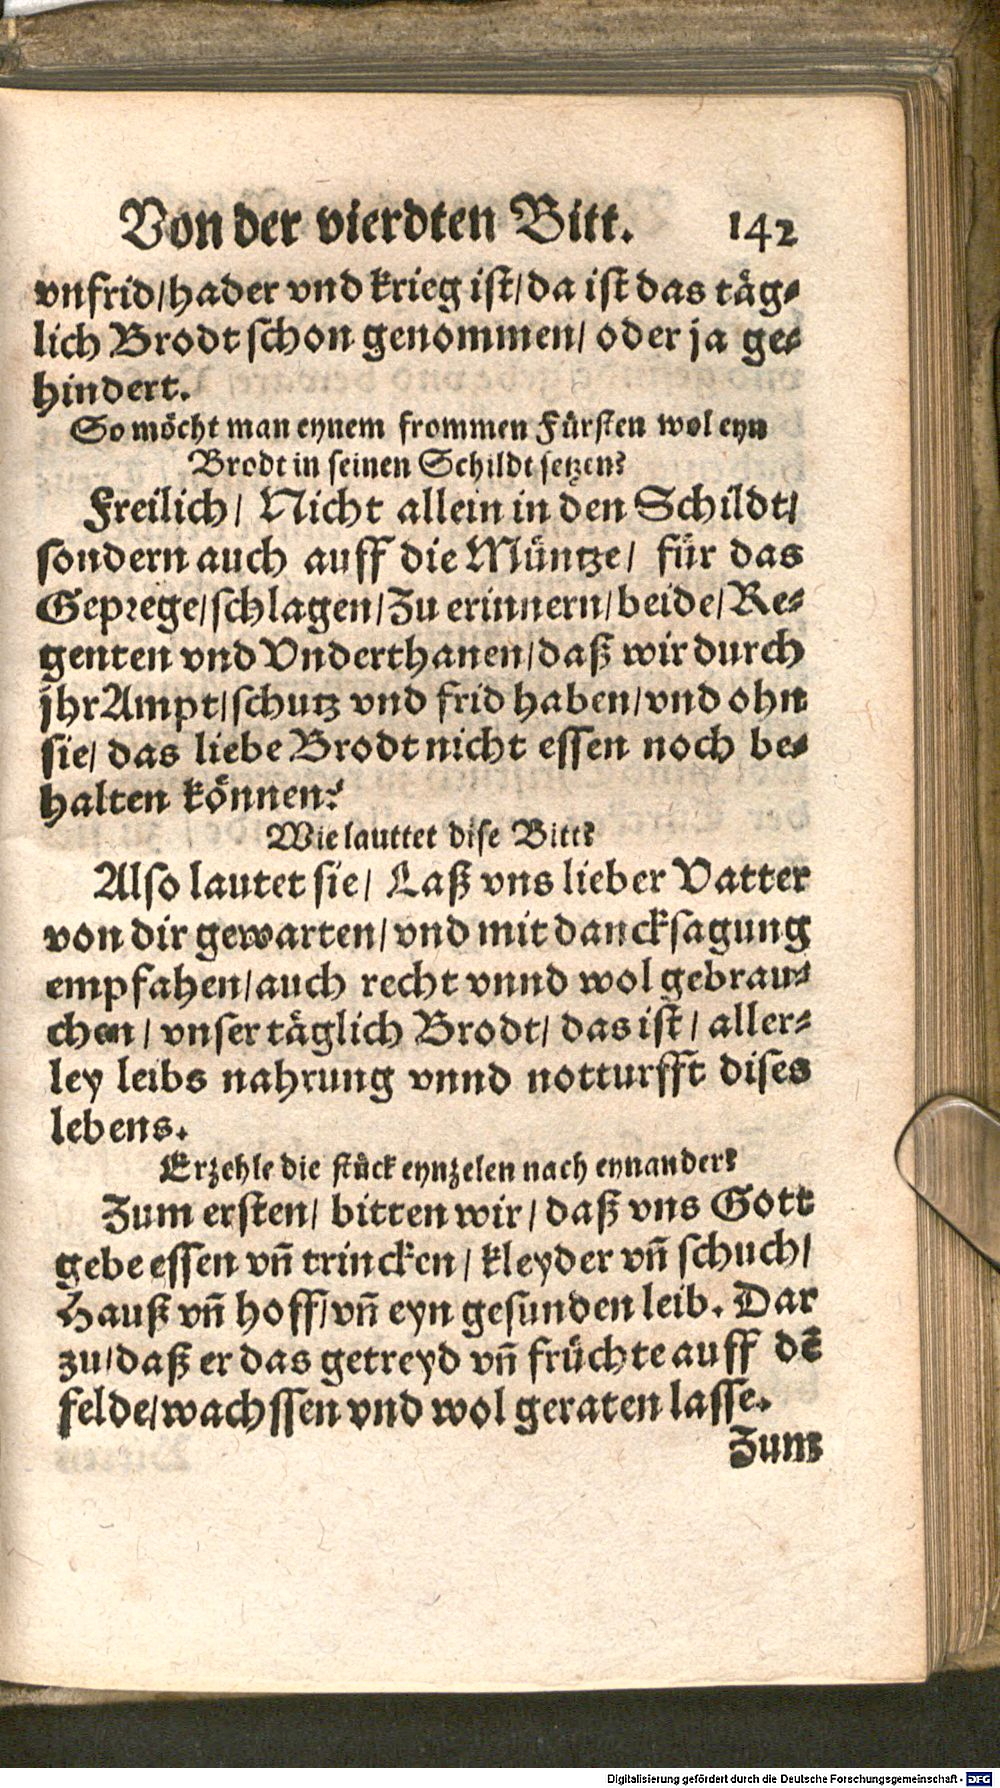 Von der vierdten Bitt. 142
vnfrid/hader vnd krieg ist/da ist das täg⸗
lich Brodt schon genommen/ oder ja ge⸗
hindert.
So möcht man eynem frommen Fürsten wol eyn
Brodt in seinen Schildt setzen?
Freilich/ Nicht allein in den Schildt/
sondern auch auff die Müntze/ für das
Geprege/schlagen/Zu erinnern/beide/Re⸗
genten vnd Vnderthanen/daß wir durch
jhr Ampt/schutz vnd frid haben/vnd ohn
sie/ das liebe Brodt nicht essen noch be⸗
halten können?
Wie lauttet dise Bitt?
Also lautet sie/ Laß vns lieber Vatter
von dir gewarten/vnd mit dancksagung
empfahen/auch recht vnnd wol gebrau⸗
chen/ vnser täglich Brodt/ das ist/ aller⸗
ley leibs nahrung vnnd notturfft dises
lebens.
Erzehle die stück eynzelen nach eynander?
Zum ersten/ bitten wir/ daß vns Gott
gebe essen vñ trincken/ kleyder vñ schuch/
Hauß vñ hoff/vñ eyn gesunden leib. Dar
zu/daß er das getreyd vñ früchte auff dẽ
felde/wachssen vnd wol geraten lasse.
Zum
Digitalisierung gefördert durch die Deutsche Forschungsgemeinschaft - DFG